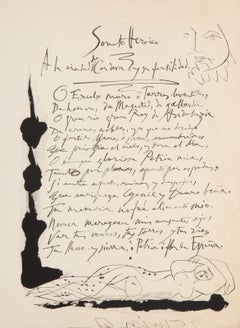 Soneto Heroico
A la ciudad de Cordova y su fertilidad
O Excelso muro o Torres levantadas
De honor, de Magestad, de gallardia
O gran rio gran Rey de Andalozia
De arenas nobles, ya que no doradas
O fertil
Que privilegia el cielo, y dora el dia,
O siempre gloriosa Patria mia,
Tanto por plumas, quanto por espadas
Si entre aquellas ruinas y despojos
Que enriquece Genil y Dauro baña
Tu memoria no fue alimento mio
Nunca merezcan mis ausentes ojos
Ver tus muros, tus torres, y tu rio
Tu llano y sierra, o Patria o flor de España